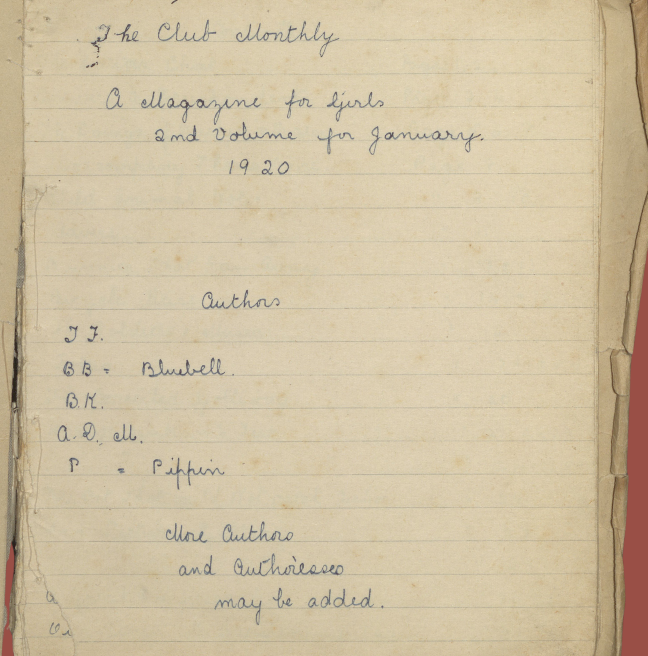 The Club Monthly
A Magazine for Girls
2nd Volume for January.
1920
Authors
J F.
BB = Bluebell.
B.K.
A.D. M.
P = Pippin
More Authors
and Authoresses
may be added.